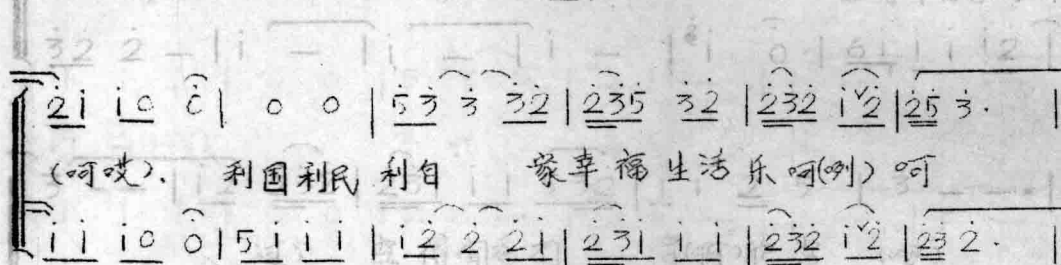 2̇ i̇ i̇ 0 0 | 0 0 | 5̇ 3̇ 3̇ 3̇ 2̇ | 2̇ 3̇ 5̇ 3̇ 2̇ | 2̇ 3̇ 2̇ i̇ ᵛ 2̇ | 2̇ 5̇ 3̇ · |
(呵哎). 利国利民 利自 家幸福生活乐呵(咧)呵
i̇ i̇ i̇ 0 0 | 5 i̇ i̇ i̇ | i̇ 2̇ 2̇ 2̇ i̇ | 2̇ 3̇ i̇ i̇ i̇ | 2̇ 3̇ 2̇ i̇ ᵛ 2̇ | 2̇ 3̇ 2̇ · |